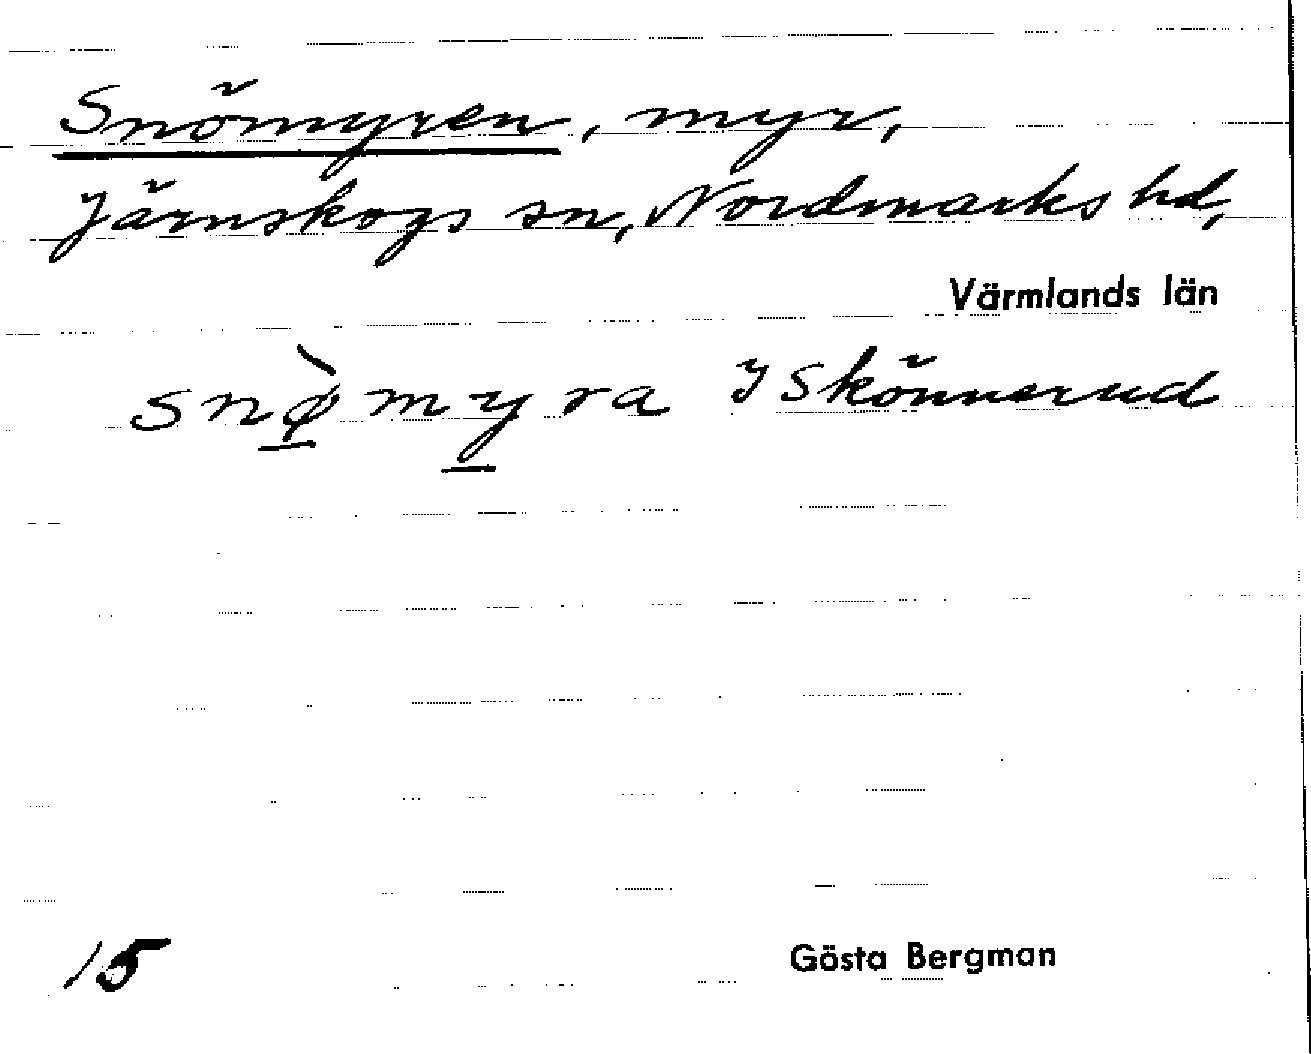 Snömyren, myr,
Järnskogs sn, Nordmarks hd,
Värmlands län
snø̀myra I Skönnerud
15
Gösta Bergman